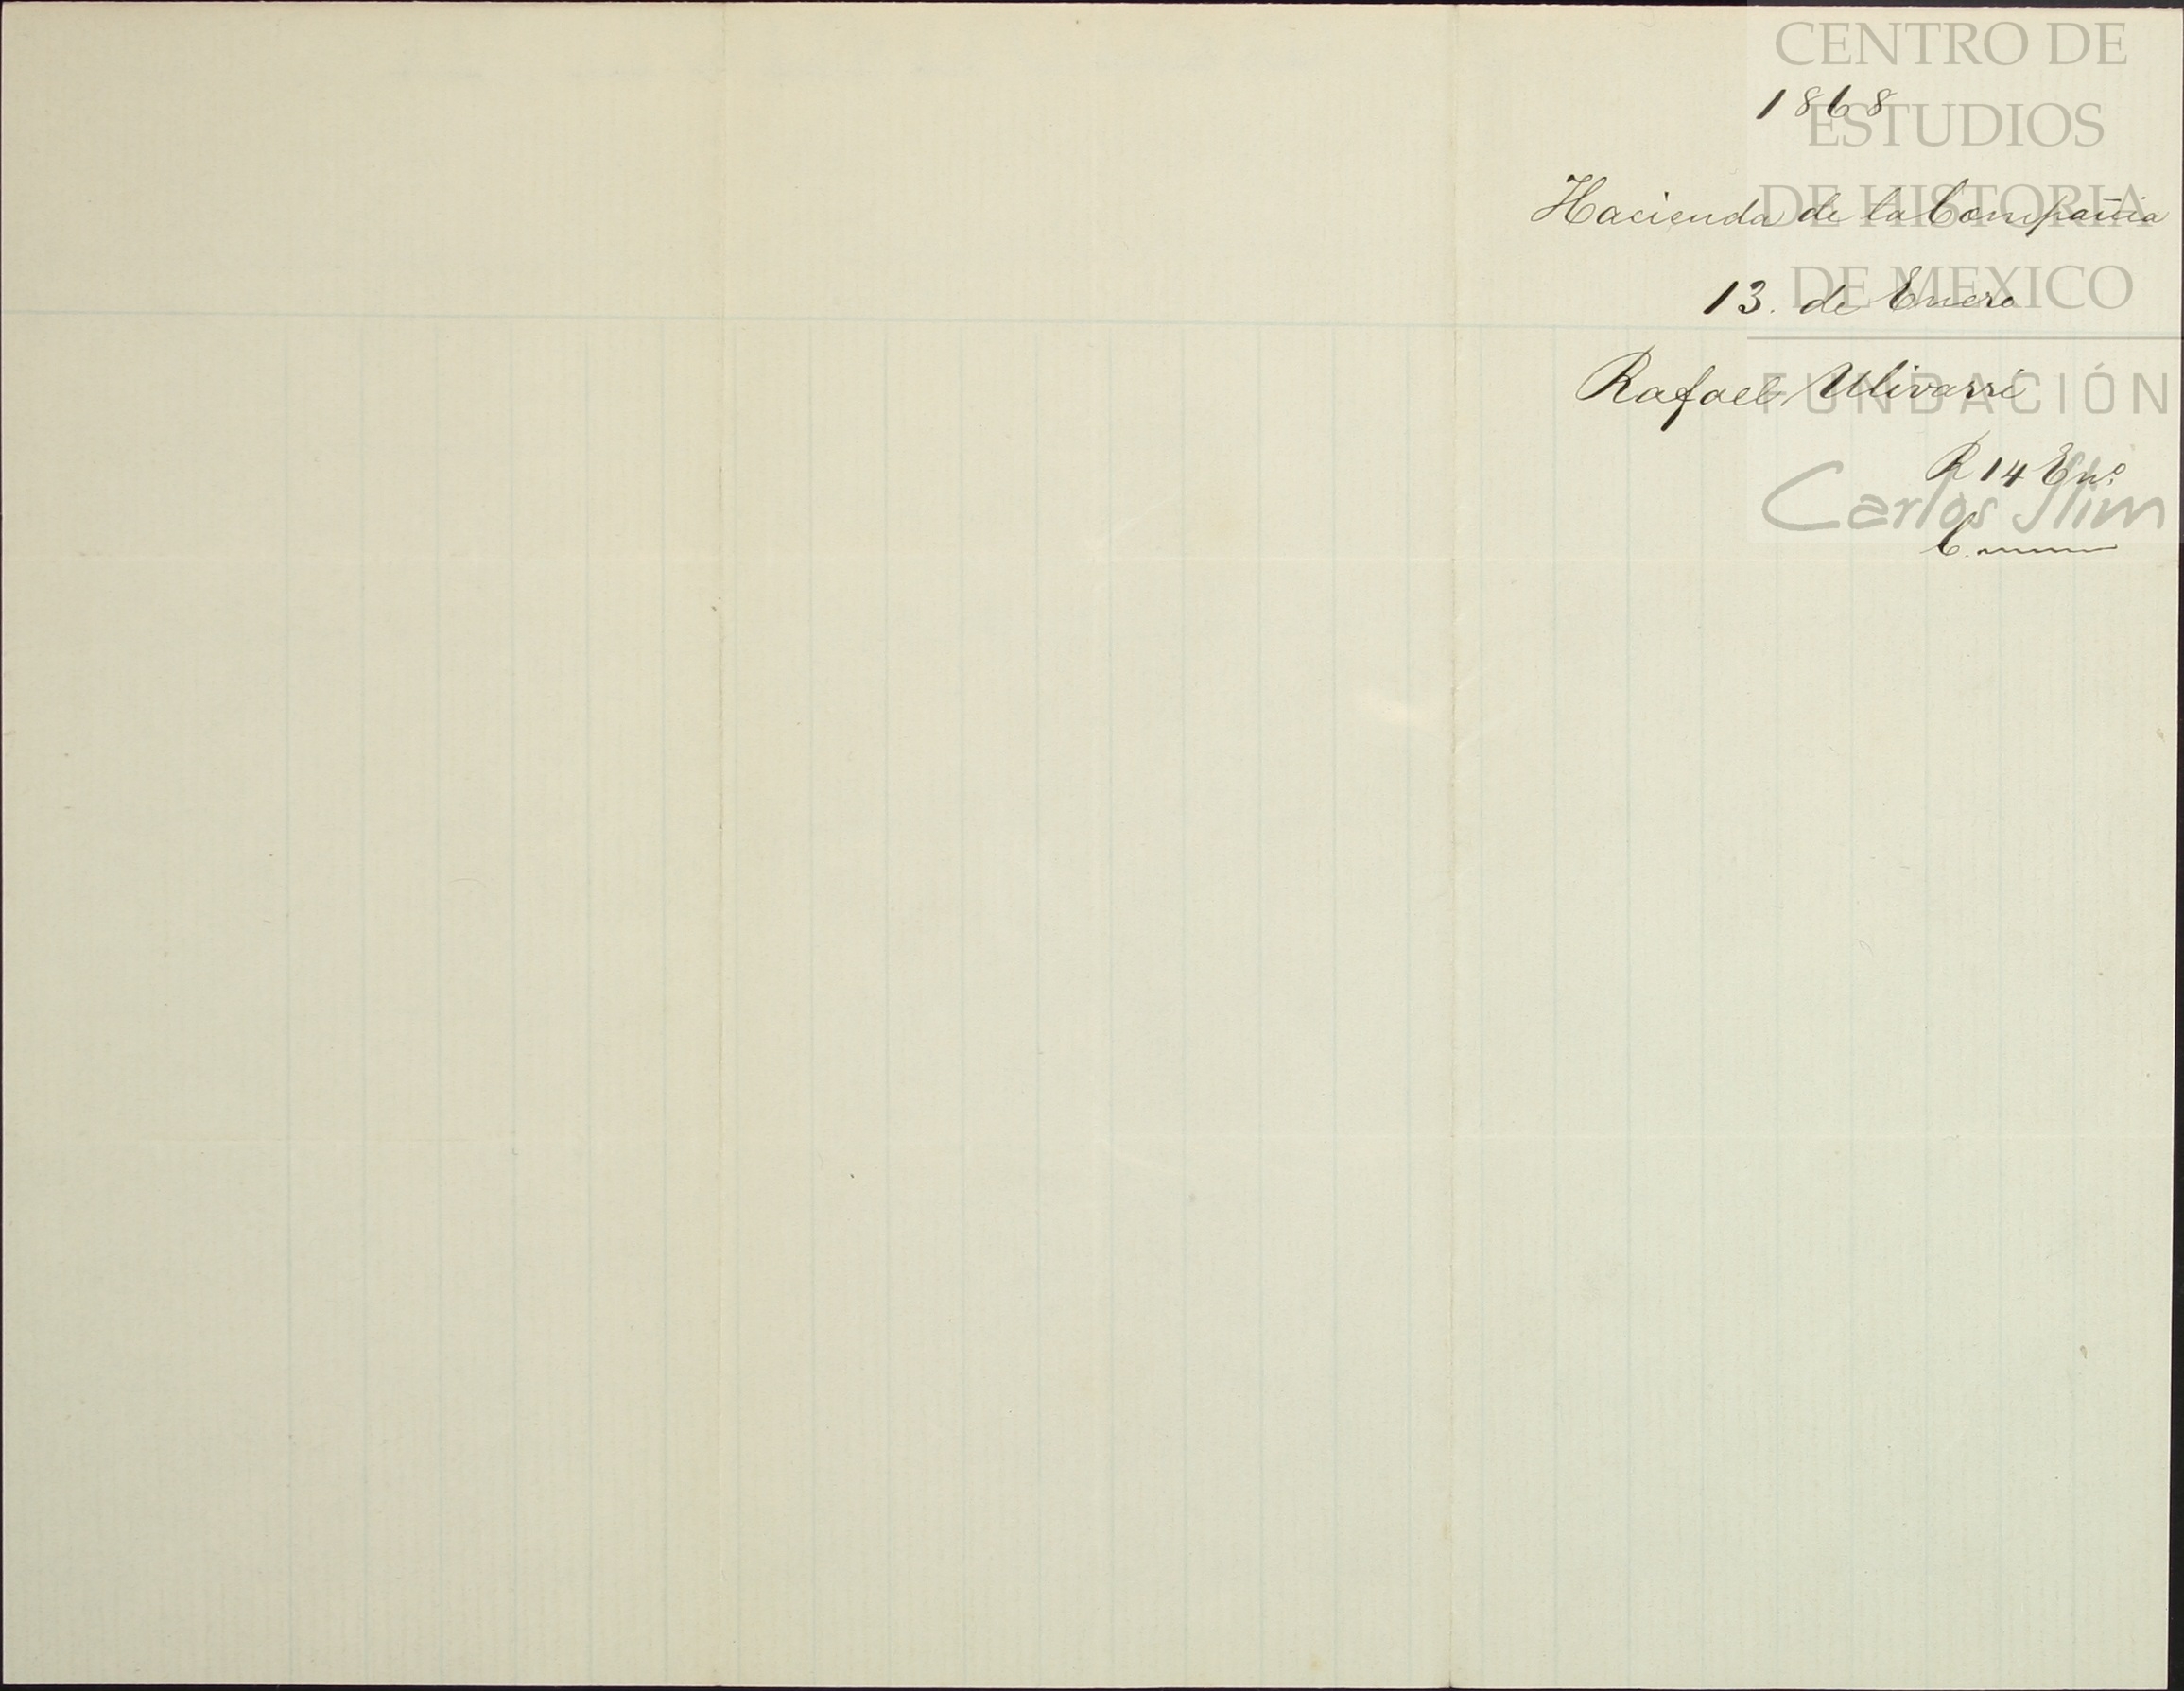 CENTRO DE
ESTUDIOS
DE HISTORIA
DE MEXICO
FUNDACIÓN
Carlos Slim
1868
Hacienda de la Compañia
13. de Enero
Rafael Ulivarri
R 14 En.º
C.